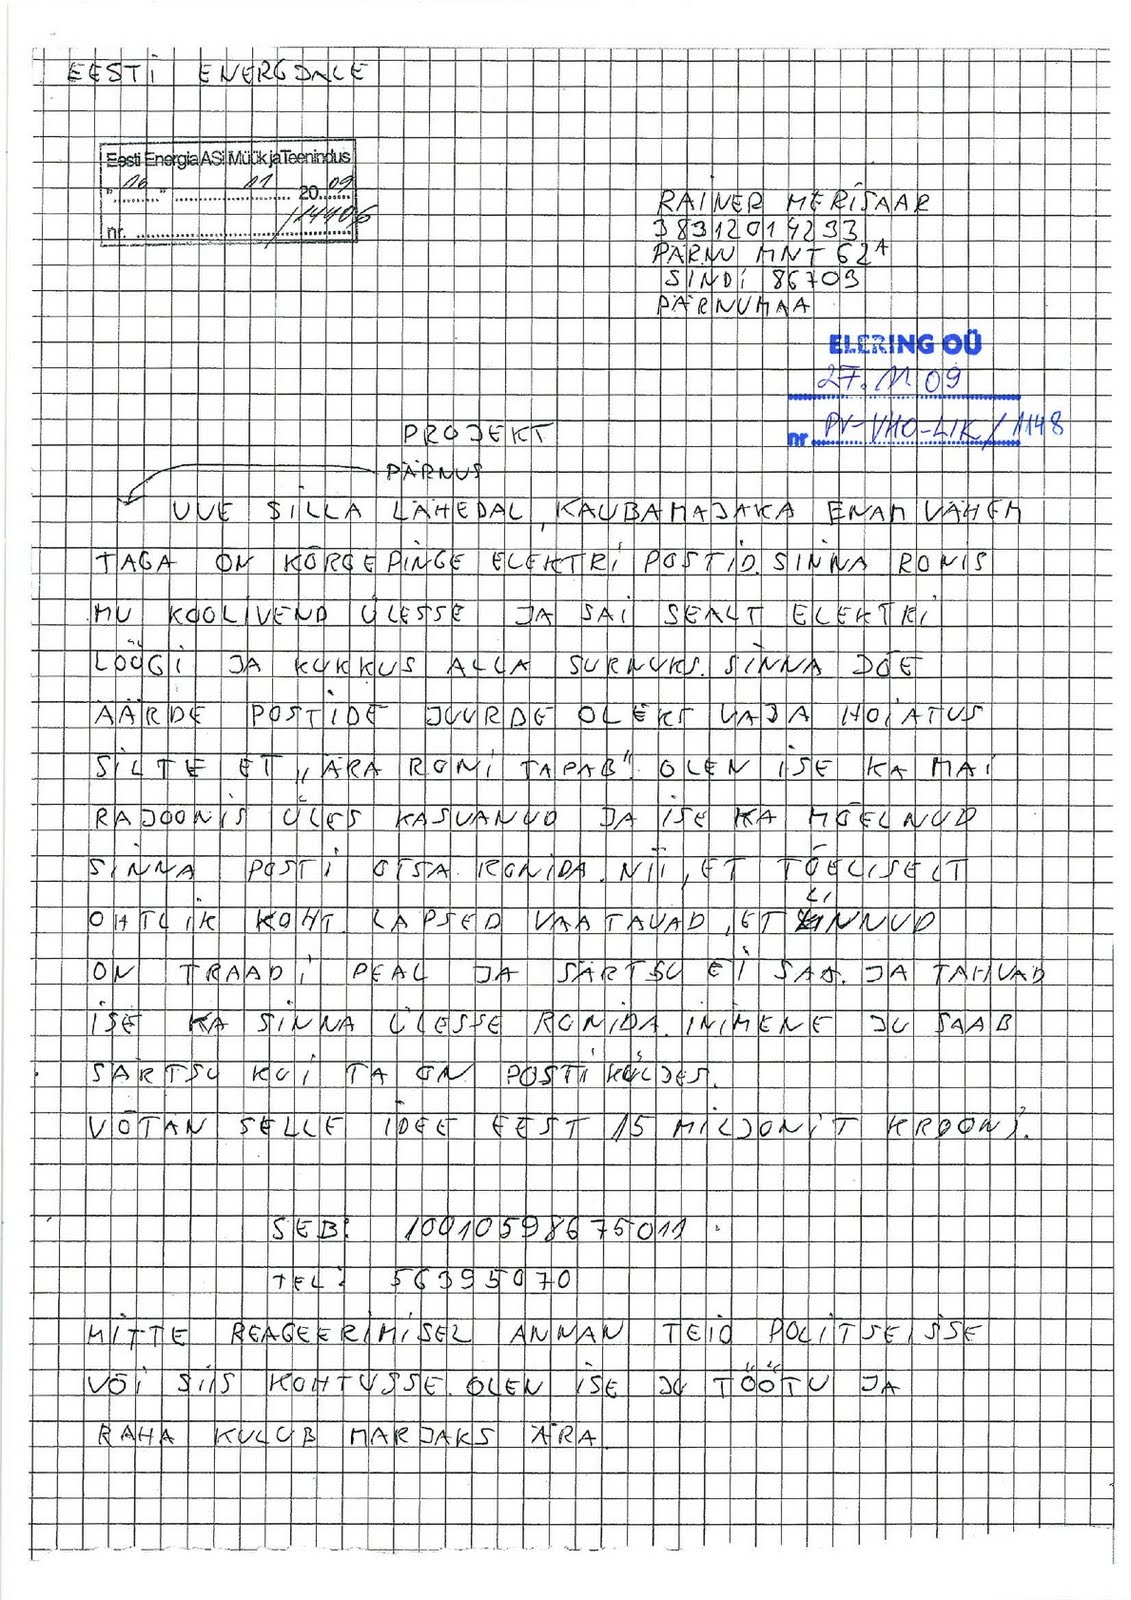 EESTI ENERGIALE
Eesti Energia AS Müük ja Teenindus
"16" 11 2009
nr. /114406
RAINER MERISAAR
38312014233
PÄRNU MNT 62A
SINDI 86703
PÄRNUMAA
ELERING OÜ
27.11.09
nr PV-VHO-LIK/1148
PROJEKT
PÄRNUS
UUE SILLA LÄHEDAL, KAUBAMAJAKA ENAM VÄHEM
TAGA ON KÕRGEPINGE ELEKTRI POSTID. SINNA RONIS
MU KOOLIVEND ÜLESSE JA SAI SEALT ELEKTRI
LÖÖGI JA KUKKUS ALLA SURNUKS. SINNA JÕE
ÄÄRDE POSTIDE JUURDE OLEKS VAJA HOIATUS
SILTE ET „ÄRA RONI TAPAB". OLEN ISE KA MAI
RAJOONIS ÜLES KASVANUD JA ISE KA MÕELNUD
SINNA POSTI OTSA RONIDA. NII, ET TÕELISELT
OHTLIK KOHT. LAPSED VAATAVAD, ET LINNUD
ON TRAADI PEAL JA SÄRTSU EI SAA. JA TAHVAD
ISE KA SINNA ÜLESSE RONIDA. INIMENE JU SAAB
SÄRTSU KUI TA ON POSTI KÜLJES.
VÕTAN SELLE IDEE EEST 15 MILJONIT KROONI.
SEB: 10010598675011
TEL: 56395070
MITTE REAGEERIMISEL ANNAN TEID POLITSEISSE
VÕI SIIS KOHTUSSE. OLEN ISE JU TÖÖTU JA
RAHA KULUB MARJAKS ÄRA